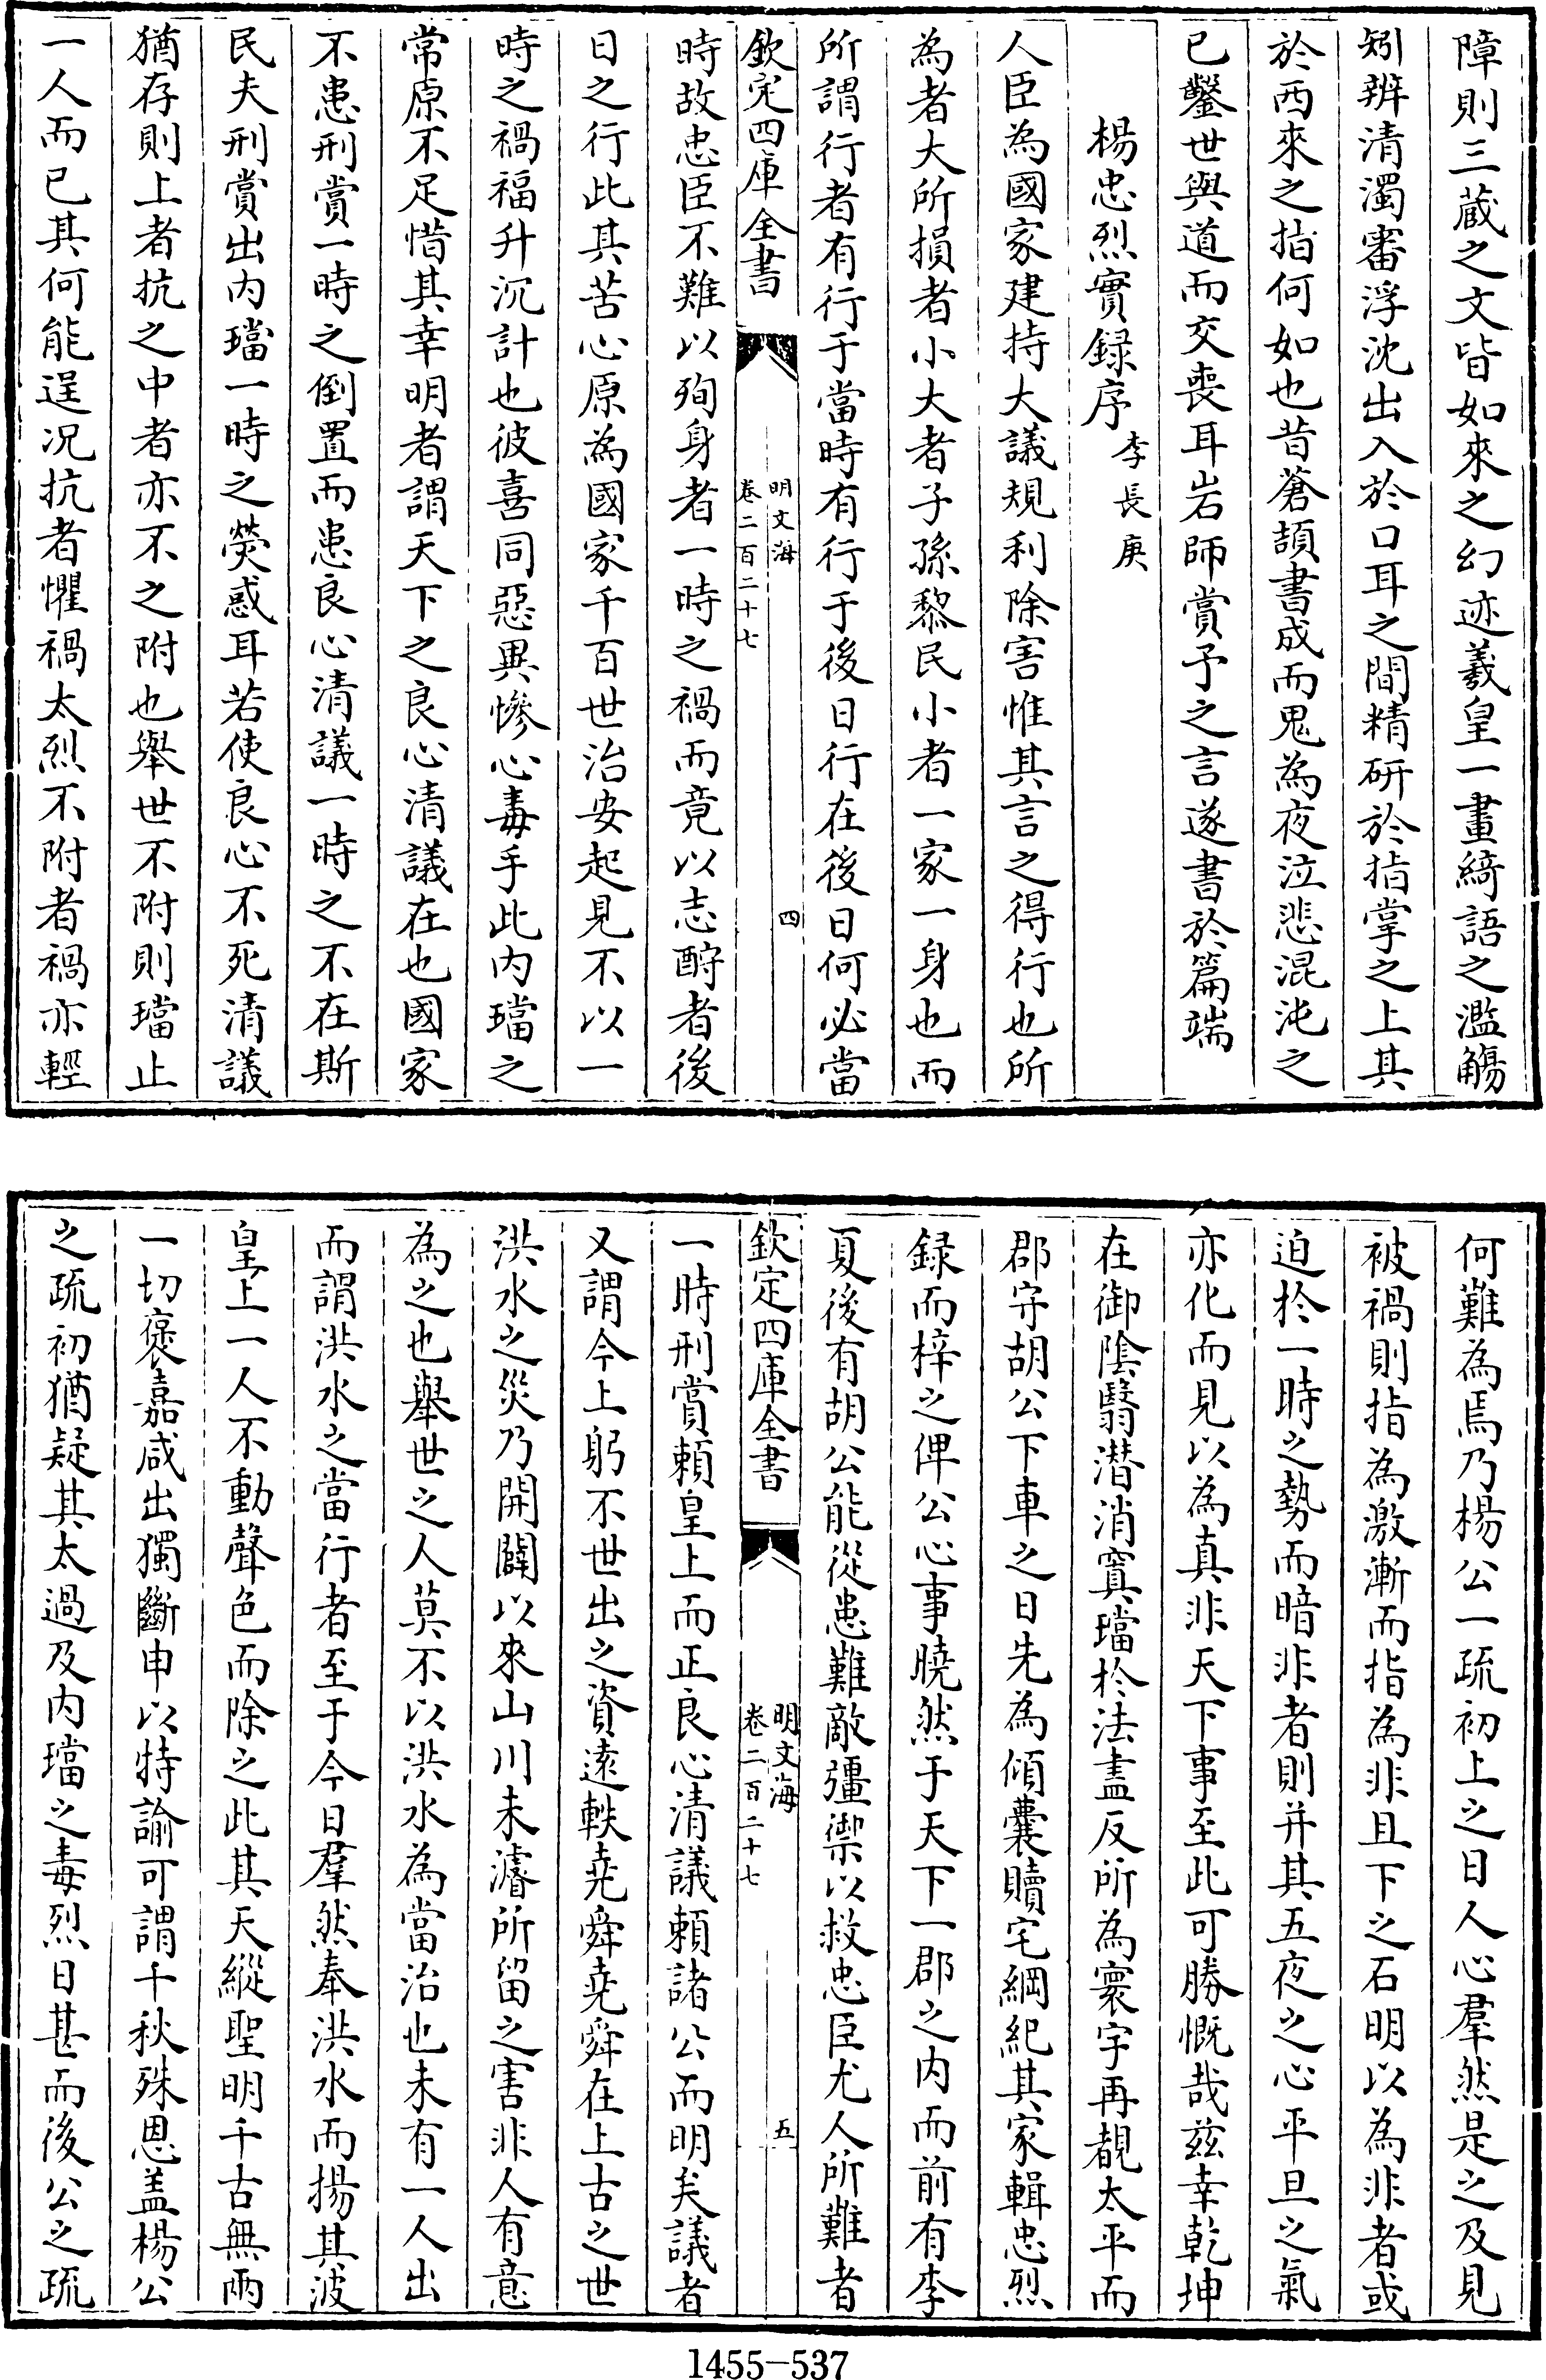 障則三藏之文皆如來之幻迹羲皇一畫綺語之濫觴
矧辨清濁審浮沈出入於口耳之間精研於指掌之上其
於西來之指何如也昔蒼頡書成而鬼為夜泣悲混沌之
已鑿世與道而交喪耳岩師賞予之言遂書於篇端
楊忠烈實録序 李長庚
人臣為國家建持大議規利除害惟其言之得行也所
為者大所損者小大者子孫黎民小者一家一身也而
所謂行者有行于當時有行于後日行在後日何必當
欽定四庫全書 明文海 卷二百二十七 四
時故忠臣不難以殉身者一時之禍而竟以志酧者後
日之行此其苦心原為國家千百世治安起見不以一
時之禍福升沉計也彼喜同惡異慘心毒手此内璫之
常原不足惜其幸明者謂天下之良心清議在也國家
不患刑賞一時之倒置而患良心清議一時之不在斯
民夫刑賞出内璫一時之熒惑耳若使良心不死清議
猶存則上者抗之中者亦不之附也舉世不附則璫止
一人而已其何能逞况抗者懼禍太烈不附者禍亦輕
何難為焉乃楊公一疏初上之日人心羣然是之及見
被禍則指為激漸而指為非且下之石明以為非者或
迫於一時之勢而暗非者則并其五夜之心平旦之氣
亦化而見以為真非天下事至此可勝慨哉兹幸乾坤
在御陰翳潜消寘璫於法盡反所為寰宇再覩太平而
郡守胡公下車之日先為傾囊贖宅綱紀其家輯忠烈
録而梓之俾公心事曉然于天下一郡之内而前有李
夏後有胡公能從患難敵彊禦以救忠臣尤人所難者
欽定四庫全書 明文海 卷二百二十七 五
一時刑賞頼皇上而正良心清議頼諸公而明矣議者
又謂今上躬不世出之資逺軼堯舜堯舜在上古之世
洪水之災乃開闢以來山川未濬所留之害非人有意
為之也舉世之人莫不以洪水為當治也未有一人出
而謂洪水之當行者至于今日羣然奉洪水而揚其波
皇上一人不動聲色而除之此其天縱聖明千古無兩
一切褒嘉咸出獨斷申以特諭可謂千秋殊恩盖楊公
之疏初猶疑其太過及内璫之毒烈日甚而後公之疏
1455-537